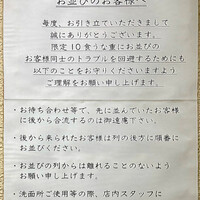 お並びのお客様へ
毎度、お引き立ていただきまして
誠にありがとうございます。
限定10食うな重にお並びの
お客様同士のトラブルを回避するためにも
以下のことをお守りくださいますよう
ご理解をお願い申し上げます。
・お待ち合わせ等で、先に並んでいたお客様
に後から合流するのは御遠慮下さい。
・後から来られたお客様は列の後方に順番に
お並びください。
・お並びの列からは離れることのないよう
お願い申し上げます。
・洗面所ご使用等の際、店内スタッフに